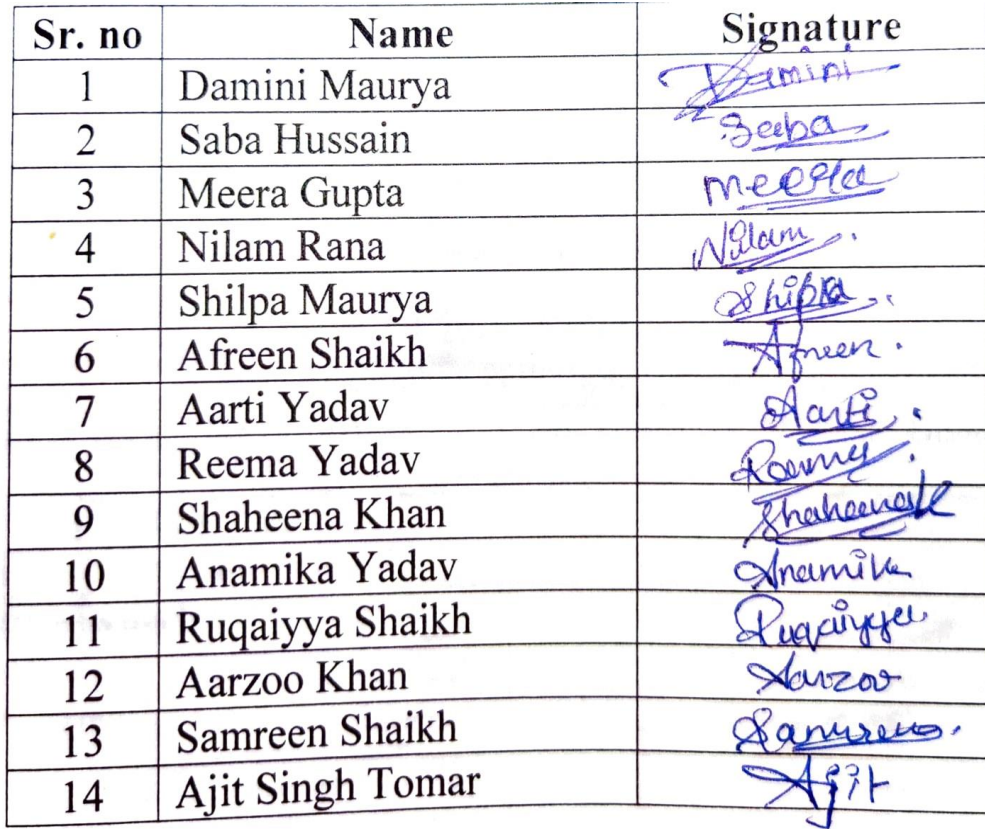 Sr. no Name Signature
1 Damini Maurya Damini
2 Saba Hussain Saba
3 Meera Gupta Meera
4 Nilam Rana Nilam
5 Shilpa Maurya Shilpa
6 Afreen Shaikh Afreen
7 Aarti Yadav Aarti
8 Reema Yadav Reema
9 Shaheena Khan Shaheenak
10 Anamika Yadav Anamika
11 Ruqaiyya Shaikh Ruqaiyya
12 Aarzoo Khan Aarzoo
13 Samreen Shaikh Samreen
14 Ajit Singh Tomar Ajit